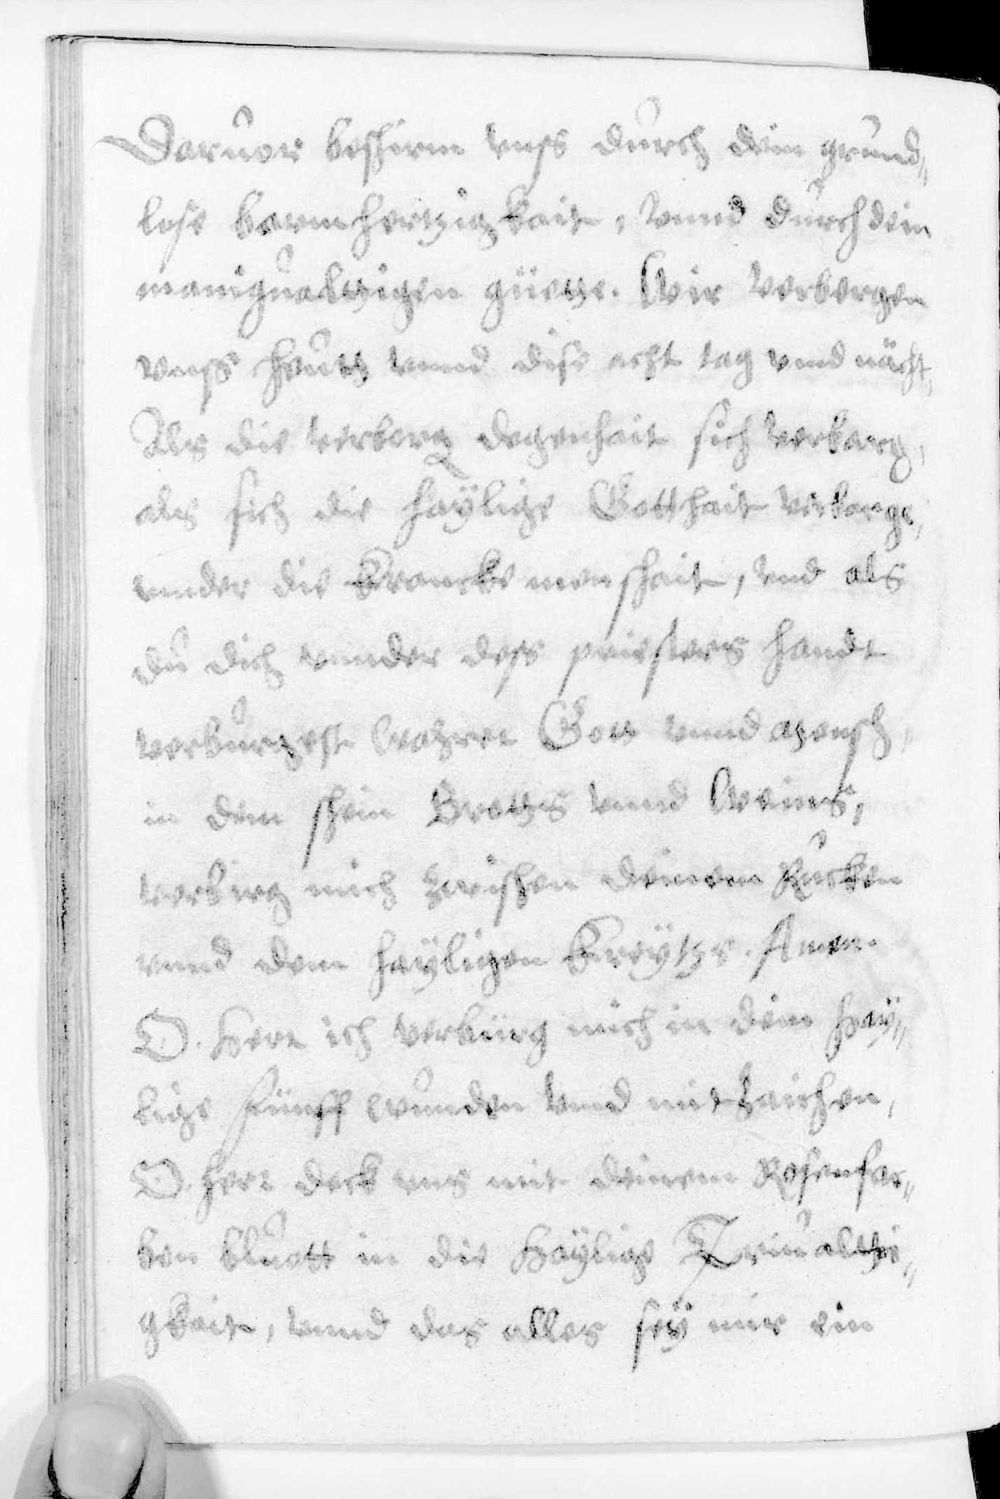 Daruor beschirm vnss durch dein grund„
lose barmhertzigkait, vnnd durch dein
manigualttigen güette. Wir verbergen
vnss heutt vnnd dise acht tag vnd nächt,
Als die verborg degenhait sich verbarg,
als sich die haÿlige Gotthait verbarge,
vnnder die Krancke menschait, vnd als
du dich vnnder dess priesters handt
verburgest wahrer Gott vnnd mensch
in dem schein Brotts vnnd Weins,
verbirg mich zwischen deinem Rucken
vnnd dem haÿligen Kreÿtz. Amen.
O. Herr ich verbürg mich in dein haÿ„
lige fünff wunden vnd mit zaichen,
O. herr deck vns mit deinem Rosenfar„
ben bluott in die Haÿlige Triualtti„
gkait, vnnd das alles seÿ mir ein